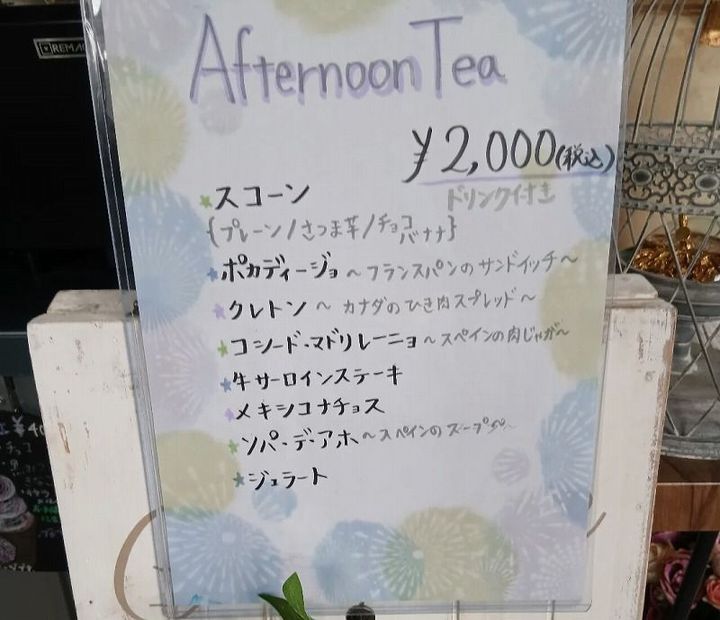 Afternoon Tea
¥2,000(税込)
ドリンク付き
スコーン
{プレーン/さつま芋/チョコバナナ}
ポカディージョ ～フランスパンのサンドイッチ～
クレトン ～カナダのひき肉スプレッド～
コシード・マドリレーニョ～スペインの肉じゃが～
牛サーロインステーキ
メキシコナチョス
ソパ・デ・アホ～スペインのスープ
ジェラート